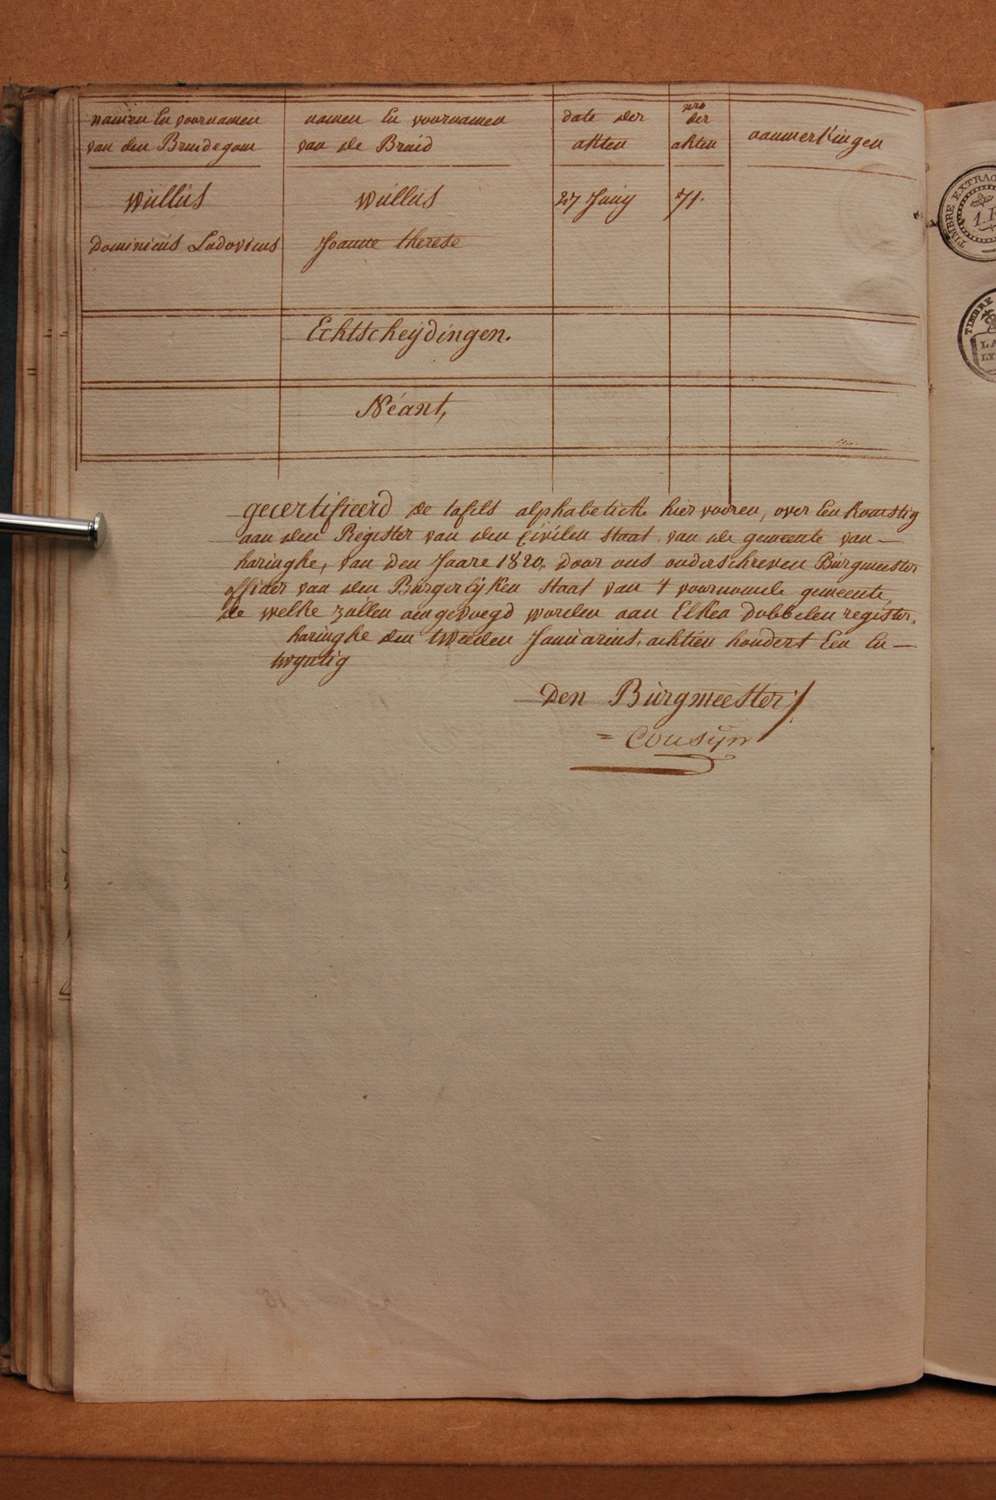 namen En voornamen
van den Bruidegom
namen En voornamen
van de Bruid
date der
akten
nro
der
akten
aanmerkingen
Wullus
Dominicus Ludovicus
Wullus
Joanne therese
27 Juny
71.
Echtscheydingen.
Néant,
gecertifieerd de tafels alphabetick hiervooren, over Eenkomstig
aan den Register van den Civilen staat van de gemeente van —
haringhe, van den Jaare 1820, door ons onderschreven Burgmeester
officier van den Burgerlyken staat van t voornomde gemeente,
de welke zullen aengevoegd worden aan Elken dobbelen register.
haringhe den tweeden Januarius, achtien hondert Een En —
twyntig
Den Burgmeester
= Cousyn
TIMBRE EXTRAO
TIMBRE